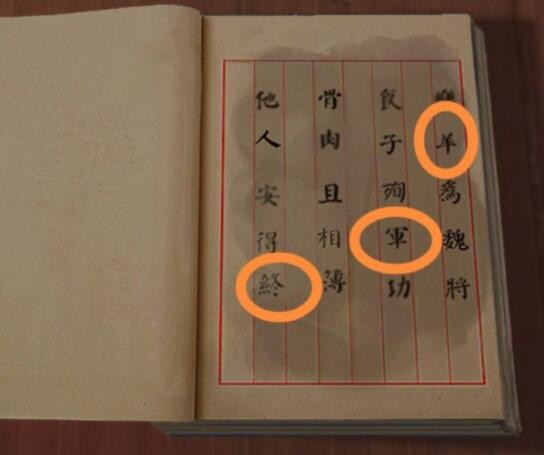 樂羊為魏將
食子殉軍功
骨肉且相簿
他人安得終